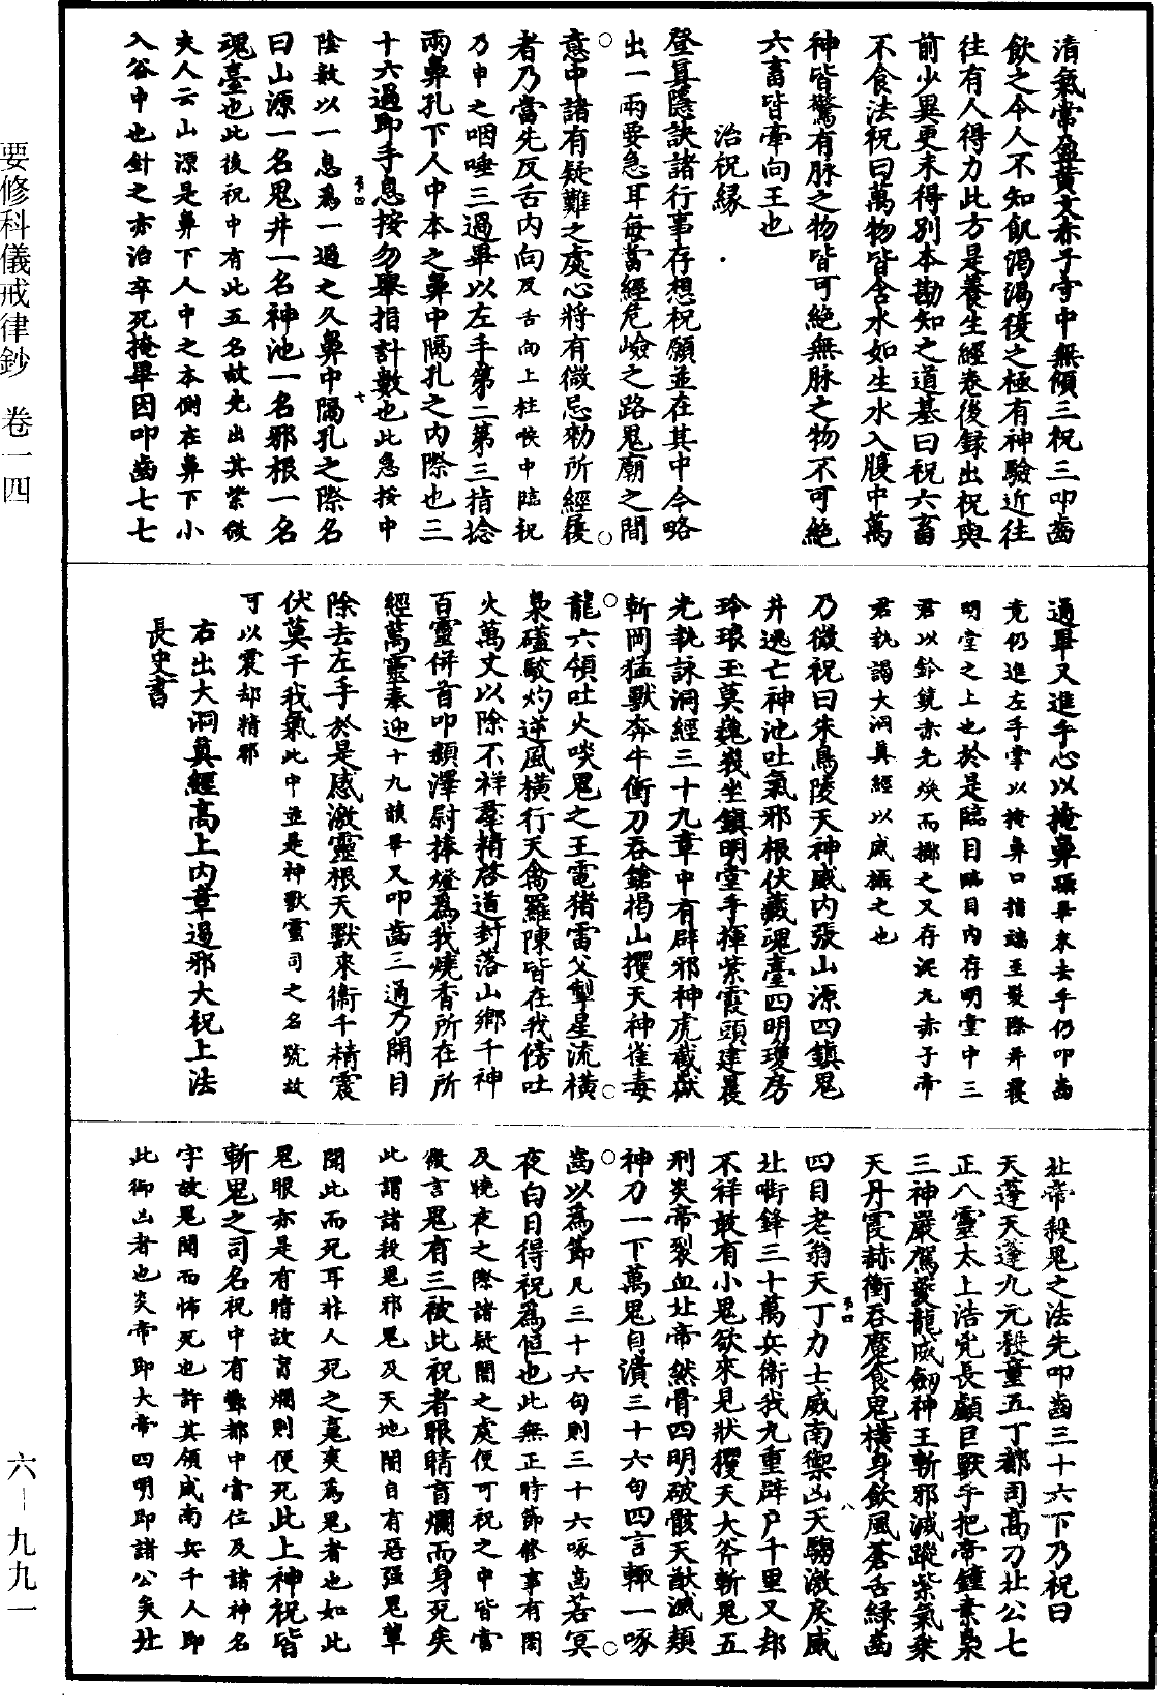 清氣常盈黃文赤子守中無傾三祝三叩齒
飲之令人不知飢渴渴後之極有神驗近往
往有人得力此方是養生經卷後録出祝與
前少異更未得別本勘知之道基曰祝六畜
不食法祝曰萬物皆含水如生水入腹中萬
神皆驚有脉之物皆可絕無脉之物不可絕
六畜皆牽向王也
治祝緣
登真隱訣諸行事存想祝願並在其中今略
出一兩要急耳每當經危嶮之路鬼廟之間
意中諸有疑難之處心將有微忌勑所經履
者乃當先反舌内向反舌向上柱喉中臨祝
乃申之咽唾三過畢以左手第二第三指捻
兩鼻孔下人中本之鼻中隔孔之内際也三
十六過即手急按勿舉指計數也此急按中
陰數以一息爲一過之久鼻中隔孔之際名
曰山源一名鬼井一名神池一名邪根一名
魂臺也此後祝中有此五名故先出其紫微
夫人云山源是鼻下人中之本側在鼻下小
入谷中也針之亦治卒死掩畢因叩齒七七
通畢又進手心以掩鼻鼻畢未去手仍叩齒
竟仍進左手掌以掩鼻口指端至髮際并覆
明堂之上也於是臨目臨目内存明堂中三
君以鈴鏡赤光煥而擲之又存泥丸赤子帝
君執謁大洞真經以威攝之也
乃微祝曰朱鳥陵天神威内張山源四鎮鬼
井逃亡神池吐氣邪根伏藏魂臺四明瓊房
玲琅玉莫巍峩坐鎮明堂手揮紫霞頭建晨
光執詠洞經三十九章中有辟邪神虎截嶽
斬岡猛獸奔牛衝刀吞鎗揭山攫天神雀毒
龍六領吐火啖鬼之王電猪雷父掣星流橫
梟磕駮灼逆風橫行天禽羅陳皆在我傍吐
火萬丈以除不祥羣精啓道封落山鄉千神
百靈併首叩顙澤尉捧燈爲我燒香所在所
經萬靈奉迎十九韻畢又叩齒三通乃開目
除去左手於是感激靈根天獸來衞千精震
伏莫干我氣此中並是神獸靈司之名號故
可以震却精邪
右出大洞真經高上内章遏邪大祝上法
長史書
北帝殺鬼之法先叩齒三十六下乃祝曰
天蓬天蓬九元殺童五丁都司高刀北公七
正八靈太上浩兇長顱巨獸手把帝鐘素梟
三神嚴駕夔龍威劒神王斬邪滅蹤紫氣乘
天丹霞赫衝吞魔食鬼橫身飲風蒼舌緑齒
四目老翁天丁力士威南禦凶天騶激戾威
北銜鋒三十萬兵衞我九重辟尸千里又却
不祥敢有小鬼欲來見狀玃天大斧斬鬼五
刑炎帝裂血北帝然骨四明破骸天猷滅類
神刀一下萬鬼自潰三十六句四言輒一啄
齒以爲節凡三十六句則三十六啄齒若冥
夜白日得祝爲恒也此無正時節修事有闇
及曉夜之際諸疑闇之處便可祝之中皆當
微言鬼有三被此祝者眼睛盲爛而身死矣
此謂諸殺鬼邪鬼及天地間自有惡强鬼輩
聞此而死耳非人死之冤爽爲鬼者也如此
鬼眼亦是有睛故盲爛則便死此上神祝皆
斬鬼之司名祝中有酆都中當位及諸神名
字故鬼聞而怖死也許其領威南兵千人即
此御凶者也炎帝即大帝四明即諸公矣北
要修科儀戒律鈔　卷一四
六－九九一